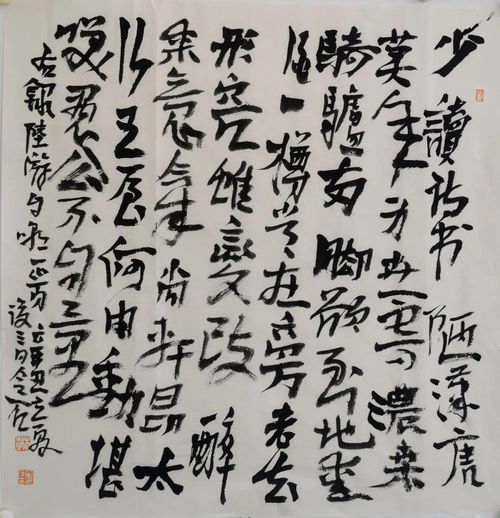 少讀詩書陋漢唐
莫年身世寄農桑
騎驢兩脚欲到地愛
酒一樽常在旁老去
形容雖變改醉
來意氣尚軒昂太
行王屋何由動堪
笑愚公不自量
右錄陸游句 辛丑立夏
後三日